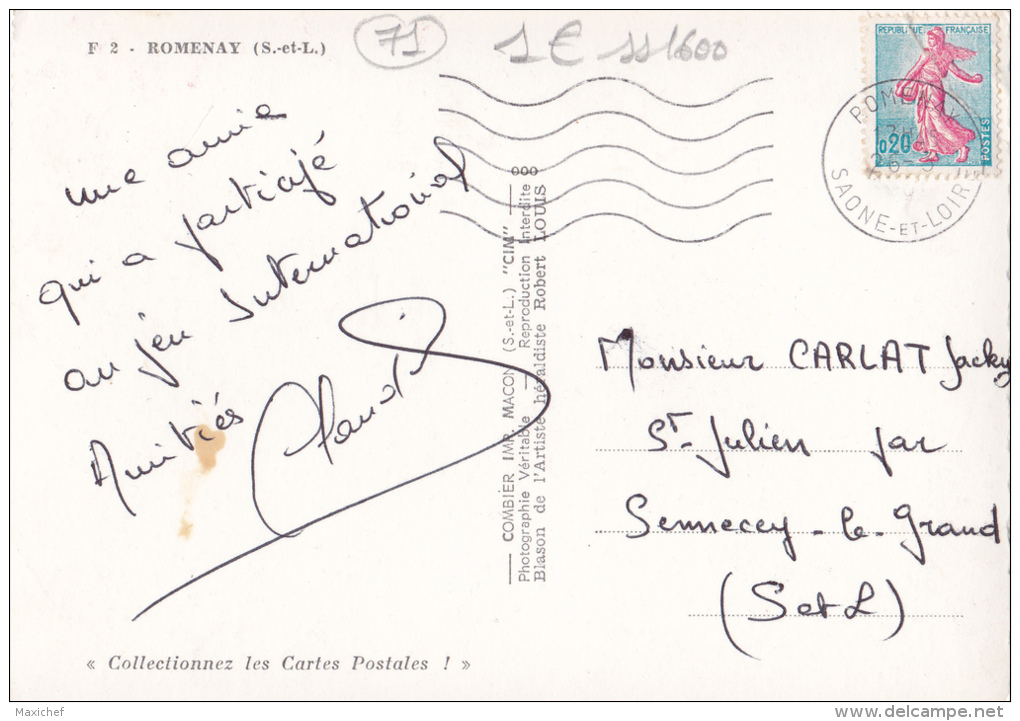 F 2 - ROMENAY (S.-et-L.)
71
1 € 111600
une amie
qui a participé
au jeu International
Amitiés
Claude
« Collectionnez les Cartes Postales ! »
COMBIER IMP. MACON (S.-et-L.) "CIM"
Photographie Véritable — Reproduction Interdite
Blason de l'Artiste héraldiste Robert LOUIS
REPUBLIQUE FRANÇAISE
0,20
POSTES
ROMENAY
SAONE-ET-LOIRE
Monsieur CARLAT Jacky
St Julien par
Sennecey-le-Grand
(S et L)
Maxichef
www.delcampe.net